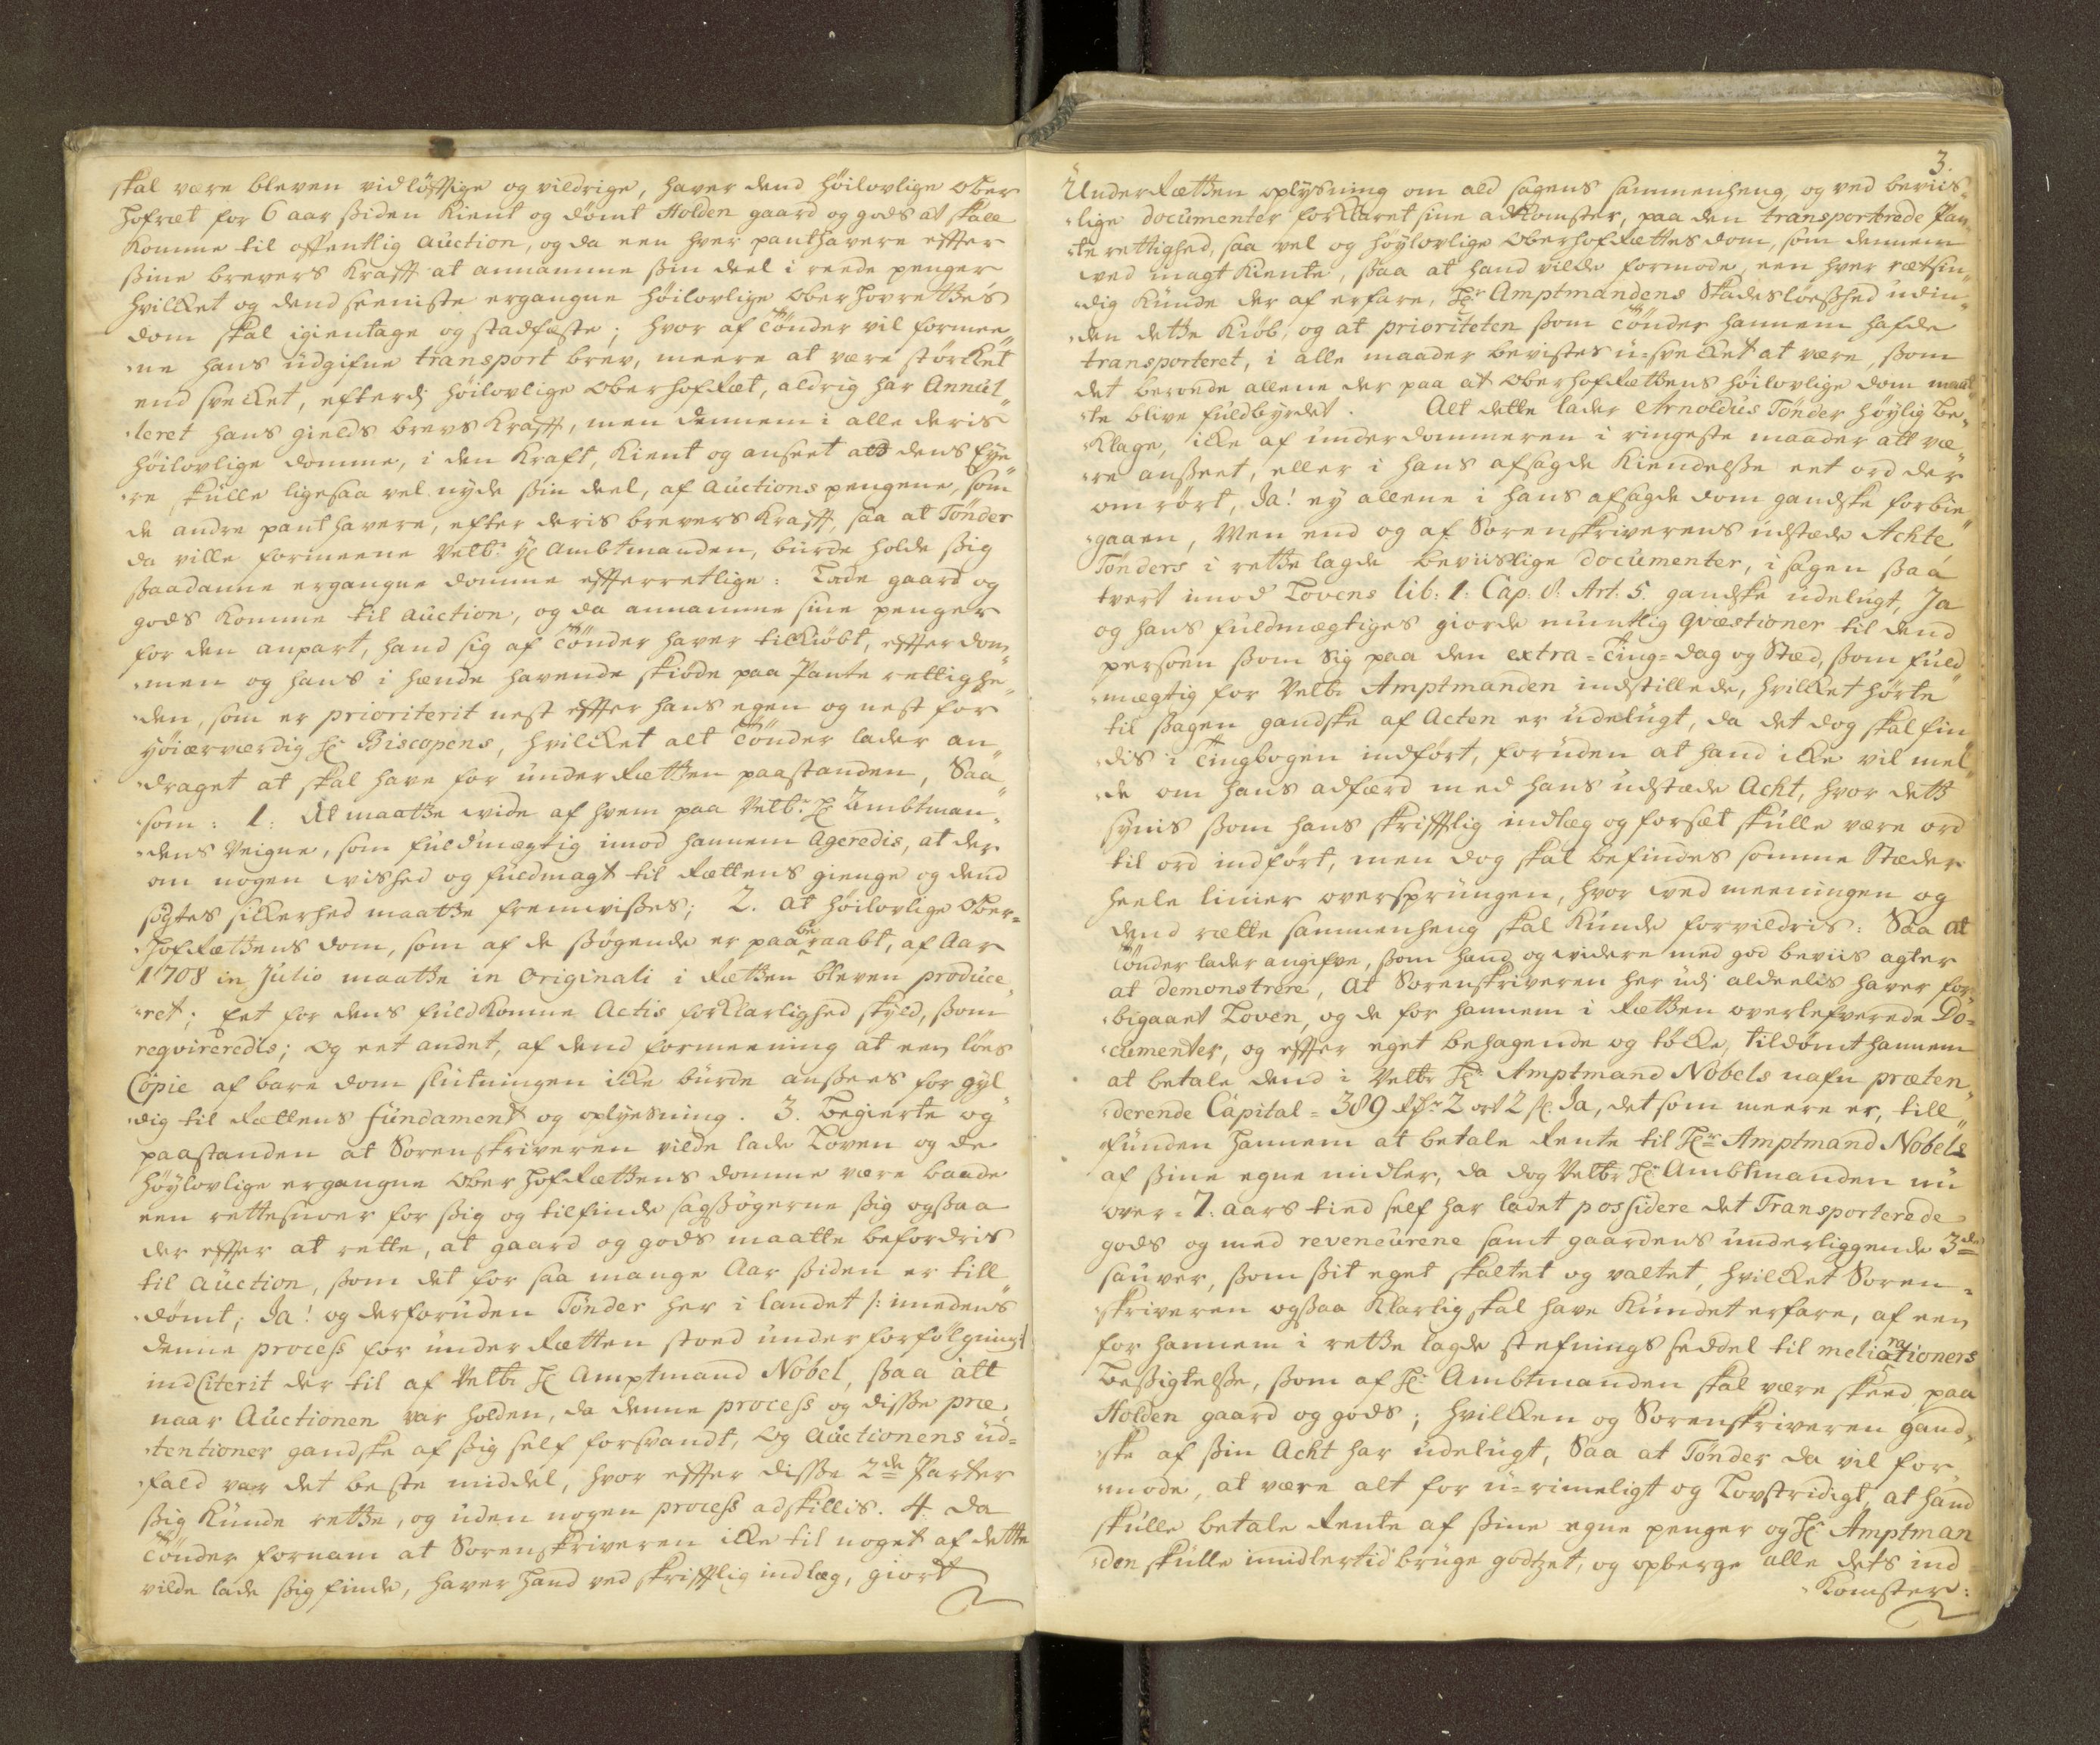 skal være bleven vidløfftige og vildrige, haver dend höilovlige Ober
Hofræt for 6 aar ßiden kient og dömt Holden gaard og gods at skall
komme til offentlig auction, og da een hver panthavere effter
ßine brevers krafft at annamme ßin deel i reede penger
hvilcket og dend seeniste ergangne höilovlige Oberhovrettßes
dom skal igientage og stadfæste; hvor af Tönder vil formee„
„ne hans üdgifne transport brev, meere at være störcket
end svecket, efterdj höilovlige OberhofRæt, aldrig har Annul„
„leret hans gields brevs krafft, men dennem i alle deris
höilovlige domme, i den kraft, kient og anseet att dens Eye„
„re skulle ligesaa vel nyde ßin deel, af auctions pengene, som
de andre panthavere, efter deris brevers krafft, saa at Tönder
da ville formeene Velb: Hr Ambtmanden, bürde holde ßig
ßaadanne ergangne domme effterretlige: Lade gaard og
gods komme til auction, og da annamme sine penger
for den anpart, hand sig af Tönder haver tilkiöbt, effter dom„
„men og hans i hænde havende skiöde paa Pante rettighe„
„den, som er prioriterit nest effter hans egen og nest for
Höiærværdig Hr Biscopens, hvilcket alt Tönder lader an„
„draget at skal have for underRættßen paastanden, Saa„
„som: 1: At maattße wide af hvem paa Velb: Hr Ambtman„
„dens Veigne, som fuldmægtig imod hannem Ageredis, at der
om nogen wished og fuldmagt til Rættens gienge og dend
sögtes sickerhed maattße fremwißes; 2. at höilovlige Ober=
HofRættßens dom, som af de ßögende er paaberaabt, af Aar
1708 in Julio maattße in Originali i Rættßen bleven produce„
„ret; Eet for dens fuldkomne Actis forklarlighed skyld, ßom
reqvireredis; Og eet andet, af dend formeening at een löes
Copie af bare dom slutningen icke bürde anßees for gyl„
„dig til Rættens fundament og oplyesning. 3. begierte og
paastanden at Sorenskriveren vilde lade Loven og de
höylovlige ergangne OberHofRættßens domme være baade
een rettesnoer for ßig og tilfinde sagßögerne ßig ogßaa
der effter at rette, at gaard og gods maatte befordris
til Auction, ßom det for saa mange Aar ßiden er till„
„dömt; Ja! og derforuden Tönder her i landet /: imedens
denne process for underRætten stoed under forfölgning :/
indCiterit der til af Velb: Hr Amptmand Nobel, ßaa att
naar Auctionen var holden, da denne process og disße præ„
„tentioner gandske af ßig self forsvandt, Og Auctionens üd=
„fald var det beste middel, hvor effter disße 2de Parter
ßig künde rettße, og uden nogen process adskillis. 4. Da
Tönder fornam at Sorenskriveren icke til noget af dette
vilde lade ßig finde, haver Hand ved skrifftlig indlæg, giort
3.
UnderRættßen oplysning om ald sagens sammenheng, og ved beviis„
„lige documenter forklaret sine adkomster, paa den transporterede Pan„
„te rettighed, saa vel og höylovlige OberhofRættes dom, som dennem
ved magt kiente, ßaa at hand vilde formode, een hver rætsin„
„dig künde der af erfare, Hr Amptmandens Skadesløesßhed udin„
„den dettße kiöb, og at prioriteten ßom Tönder hannem hafde
transporteret, i alle maader bevistes ü=svecket at være, ßom
det beroede allene der paa at OberhofRættßens höilovlige dom maat„
„te blive fuldbyrdet. Alt dette lader Arnoldus Tönder höylig be„
„klage, icke af underdommeren i ringeste maader att væ„
„re anßeet, eller i hans afsagde kiendelsße eet ord der
om rört, Ja! ey allene i hans afsagde dom gandske forbie„
„gaaen, Men end og af Sorenskriverens udstæde Achte,
Tönders i rettße lagde beviistlige documenter, i sagen ßaa
tvert imod Lovens lib: 1: Cap: 8: Art: 5. gandske udelugt, Ja
og hans fuldmægtiges giorde muntlig qvæstioner til dend
persoen ßom Sig paa den extra=Ting=dag og Stæd, ßom fuld„
„mægtig for Velb: Amptmanden indstillede, hvilcket hörte
til ßagen gandske af Acten er udelugt, da det dog skal fin„
„dis i Tingbogen indfört, foruden at hand icke vil mel„
„de om hans adfærd med hans udstæde Acht, hvor dettß
synis ßom hans skrifftlig indlæg og forsæt skulle være ord
til ord indfört, men dog skal befindes somme Stæder
heele linier oversprüngen, hvor ved meeningen og
dend rætte sammenheng skal künde forvildris: Saa at
Tönder lader angifve, ßom hand og widere med god beviis agter
at demonstrere, At Sorenskriveren her udi aldeelis haver for„
„bigaaet Loven, og de for hannem i Rættßen overlefverede Do=
„cumenter, og effter eget behagende og töcke, tildömt hannem
at betale dend i Velb: Hr Amptmand Nobels nafn præten„
„derende Capital = 389 Rdr 2 ort 2 s. Ja, det som meere er, till„
„funden hannem at betale Rente til Hr Amptmand Nobels
af ßine egne midler, da dog Velb: Hr Ambtmanden nü
over 7. aars tied self har ladet possidere det Transporterede
gods og med reveneurene samt gaardens underliggende 3de
sauver, ßom ßit eget skaltet og valtet, hvilcket Soren=
„skriveren ogßaa klarlig skal have kündet erfare, af een
for hannem i rettße lagde stefnings seddel til meliorations
Beßigtelsße, ßom af Hr Ambtmanden skal være skeed paa
Holden gaard og gods; hvilcken og Sorenskriveren gand„
„ske af ßin Acht har udelügt, Saa at Tönder da vil for„
„mode, at være alt for ü=rimeligt og Lovstridigt, at hand
skulle betale Rente af ßine egne penger og Hr Amptman„
„den skulle imidlertid brüge godtzet, og opberge alle dets ind=
„komster: